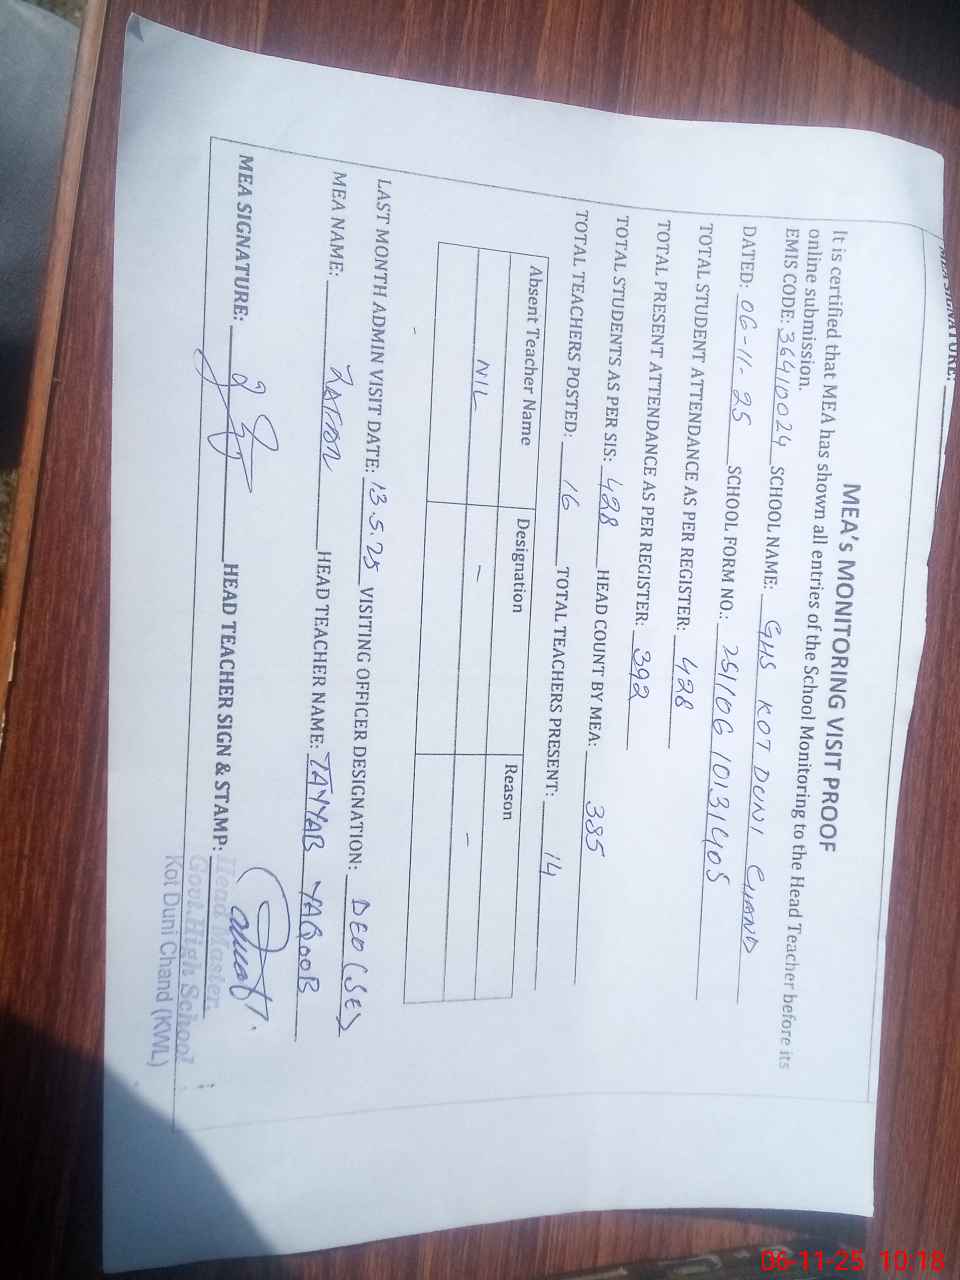 MEA SIGNATURE:
MEA's MONITORING VISIT PROOF
It is certified that MEA has shown all entries of the School Monitoring to the Head Teacher before its
online submission.
EMIS CODE: 36410024 SCHOOL NAME: GHS KOT DUNI CHAND
DATED: 06-11-25 SCHOOL FORM NO.: 251106 10131405
TOTAL STUDENT ATTENDANCE AS PER REGISTER: 428
TOTAL PRESENT ATTENDANCE AS PER REGISTER: 392
TOTAL STUDENTS AS PER SIS: 428 HEAD COUNT BY MEA: 385
TOTAL TEACHERS POSTED: 16 TOTAL TEACHERS PRESENT: 14
Absent Teacher Name Designation Reason
NIL - -
LAST MONTH ADMIN VISIT DATE: 13.5.25 VISITING OFFICER DESIGNATION: DEO (SE)
MEA NAME: HEAD TEACHER NAME: TAYYAB YAQOOB
MEA SIGNATURE: HEAD TEACHER SIGN & STAMP:
Head Master,
Govt. High School
Kot Duni Chand (KWL)
06-11-25 10:18